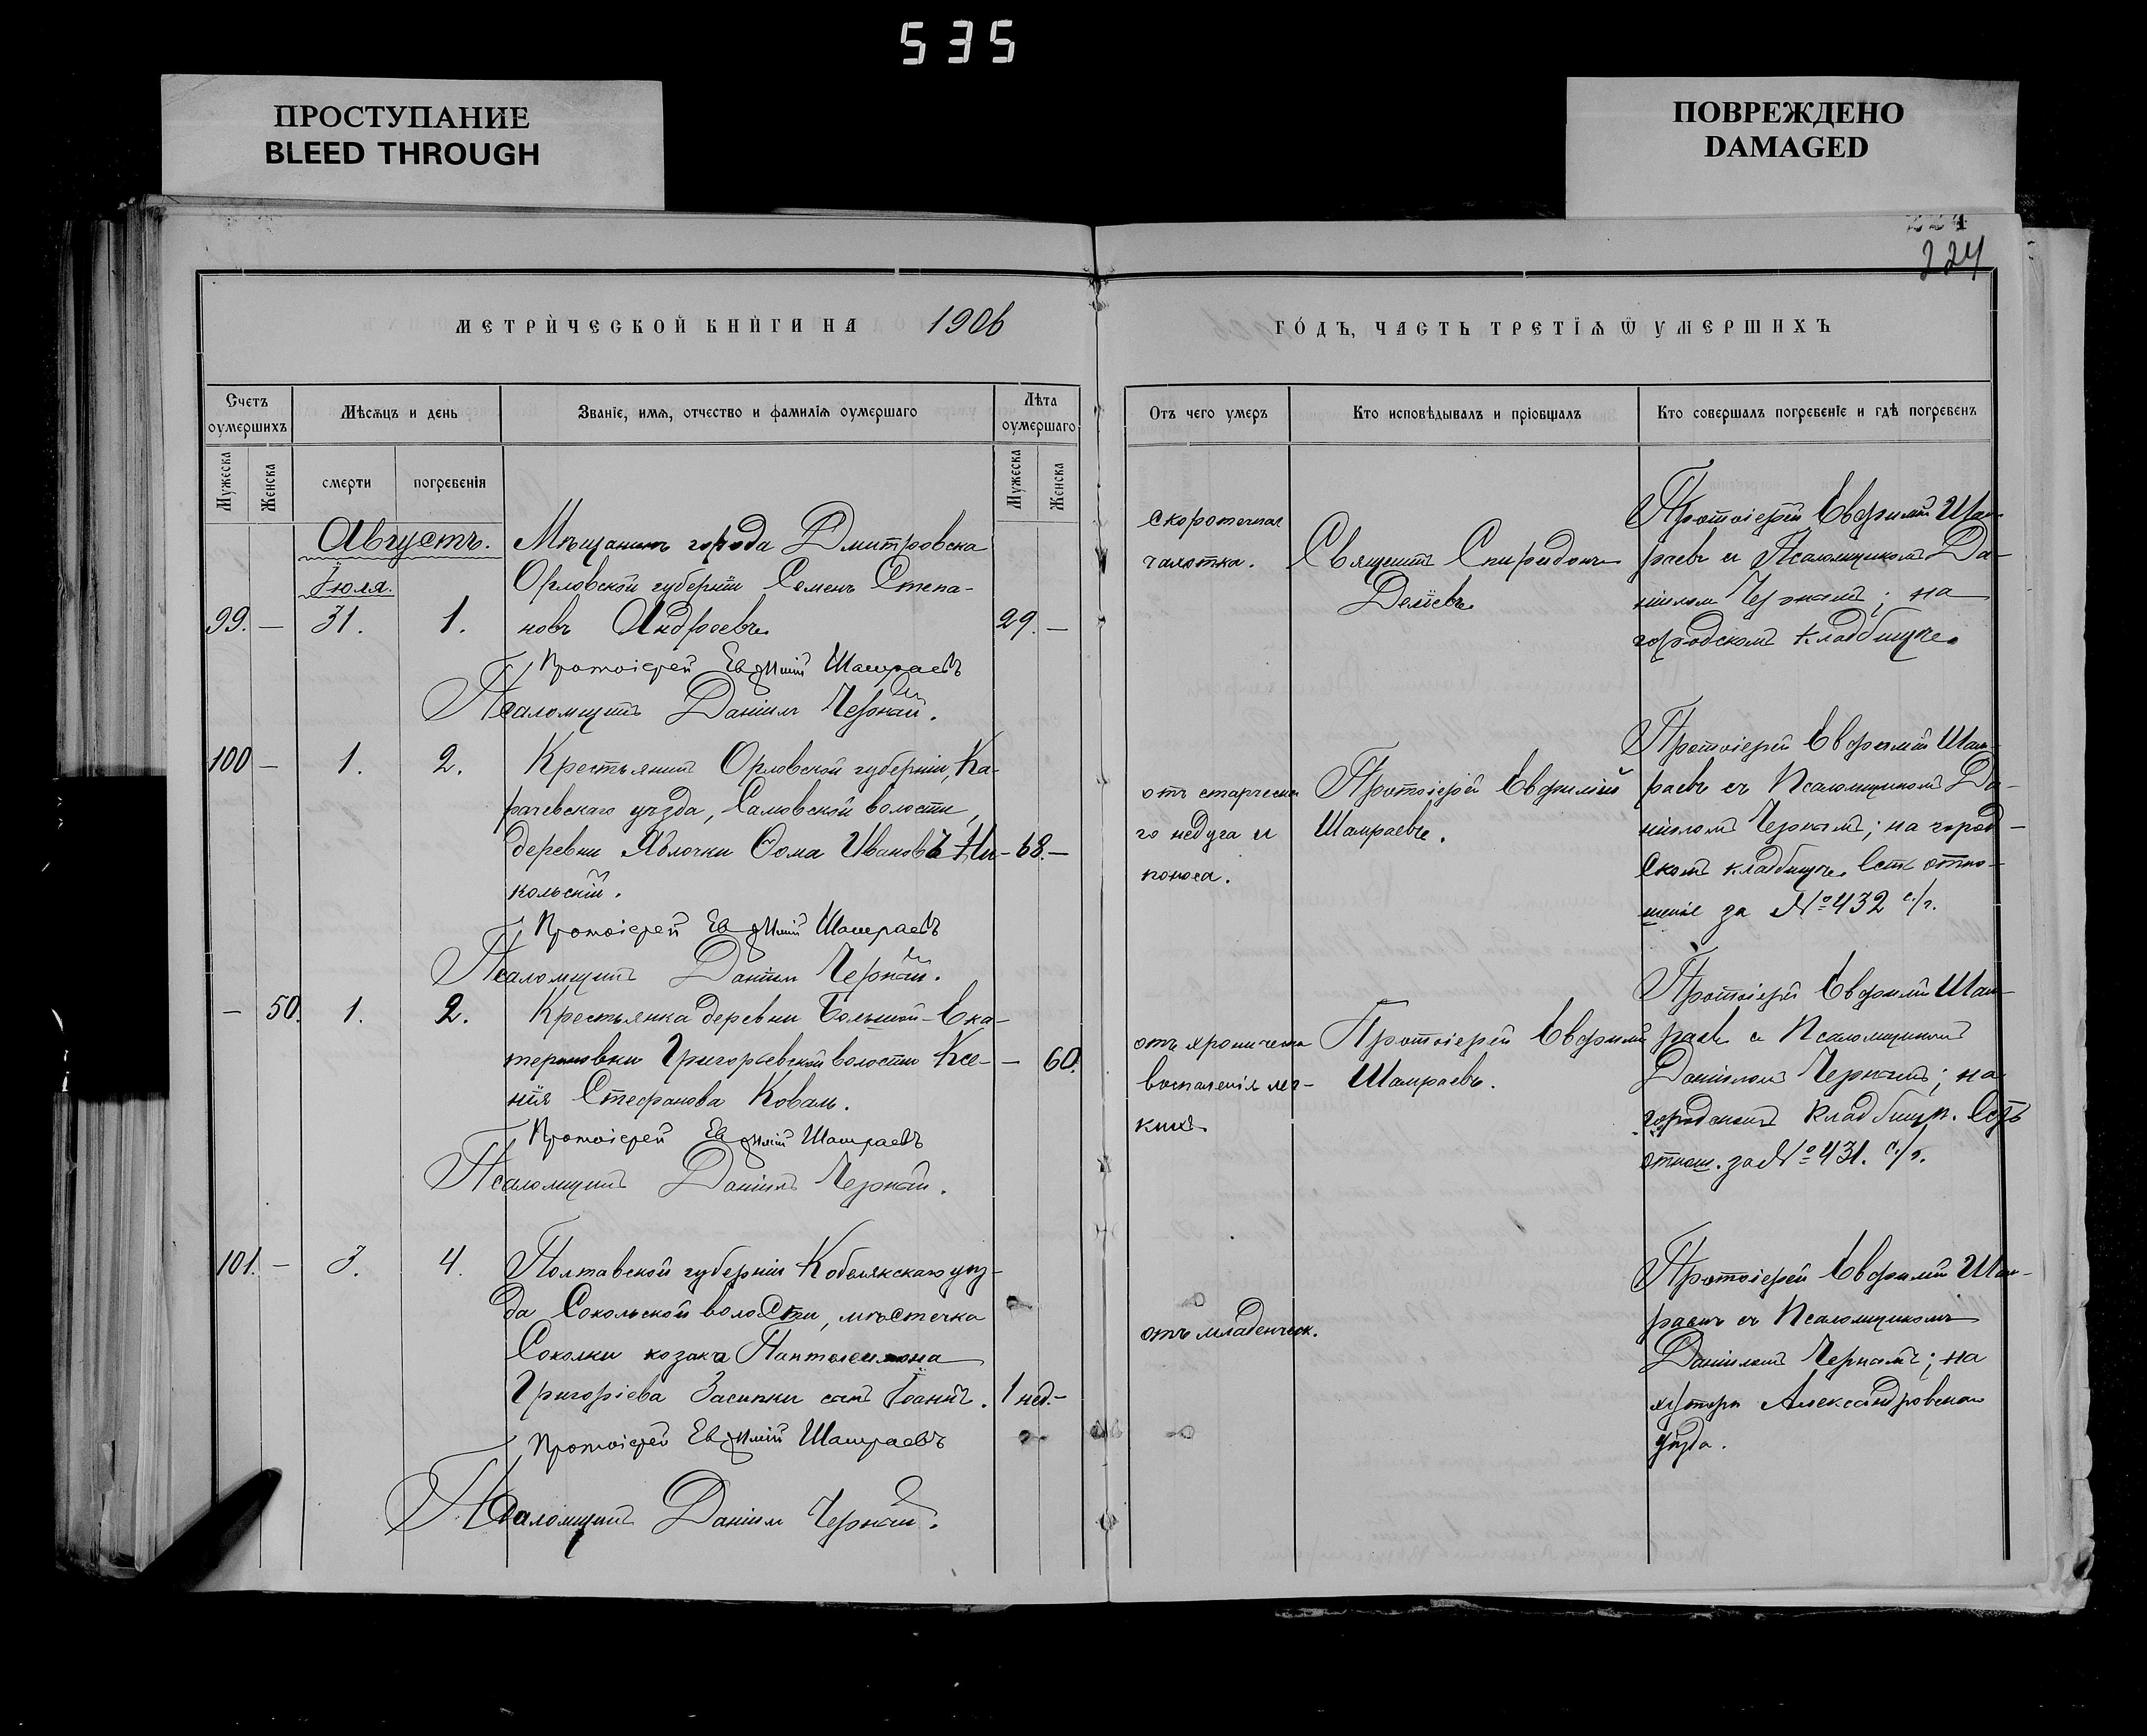 535
ПРОСТУПАНИЕ
BLEED THROUGH
ПОВРЕЖДЕНО
DAMAGED
224
224
МЕТРИЧЕСКОЙ КНИГИ НА 1906
ГОДЪ, ЧАСТЬ ТРЕТІЯ Ѿ УМЕРШИХЪ
Счетъ оумершихъ
Мѣсяцъ и день
Званіе, имя, отчество и фамилія оумершаго
Лѣта оумершаго
Отъ чего умеръ
Кто исповѣдывалъ и пріобщалъ
Кто совершалъ погребеніе и гдѣ погребенъ
Мужеска
Женска
смерти
погребенія
Мужеска
Женска
Августъ.
Іюля.
99. — 31. 1.
Мѣщанинъ города Дмитровска
Орловской губерніи Семенъ Степа-
новъ Андреевъ.
29. —
Протоіерей Евѳимій Шамраевъ
Псаломщикъ Даніилъ Чернай.
скоротечная
чахотка.
Священ. Спиридонъ
Протоіерей Евфимій Шам-
раевъ съ Псаломщикомъ Да-
ніиломъ Чернаемъ; на
городскомъ кладбищѣ.
100 — 1. 2.
Крестьянинъ Орловской губерніи, Ка-
рачевскаго уѣзда, Самовской волости,
деревни Яблочки Ѳома Ивановъ Ни-
кольскій.
68. —
Протоіерей Евѳимій Шамраевъ
Псаломщикъ Даніилъ Чернай.
отъ старческа
го недуга и
поноса.
Протоіерей Евфимій
Шамраевъ.
Протоіерей Евфимій Шам-
раевъ съ Псаломщикомъ Да-
ніиломъ Чернаемъ; на город-
скомъ кладбищѣ. Есть отно-
шеніе за № 432 с/г.
— 50. 1. 2.
Крестьянка деревни Большой-Ека-
териновки Григорьевской волости Ксе-
нія Стефанова Коваль.
— 60.
Протоіерей Евѳимій Шамраевъ
Псаломщикъ Даніилъ Чернай.
отъ хроническа
воспаленія лег-
кихъ
Протоіерей Евфимій
Шамраевъ.
Протоіерей Евфимій Шам-
раевъ съ Псаломщикомъ
Даніиломъ Чернаемъ; на
городскомъ кладбищѣ. Есть
отнош. за № 431. с/г.
101. — 3. 4.
Полтавской губерніи Кобелякскаго уѣз-
да Сокольской волости, мѣстечка
Соколки козака Пантелеимона
Григоріева Засипки сынъ Іоаннъ.
1 нед. —
Протоіерей Евѳимій Шамраевъ
Псаломщикъ Даніилъ Чернай.
отъ младенческ.
Протоіерей Евфимій Шам-
раевъ съ Псаломщикомъ
Даніиломъ Чернаемъ; на
хуторѣ Александровскаго
уѣзда.